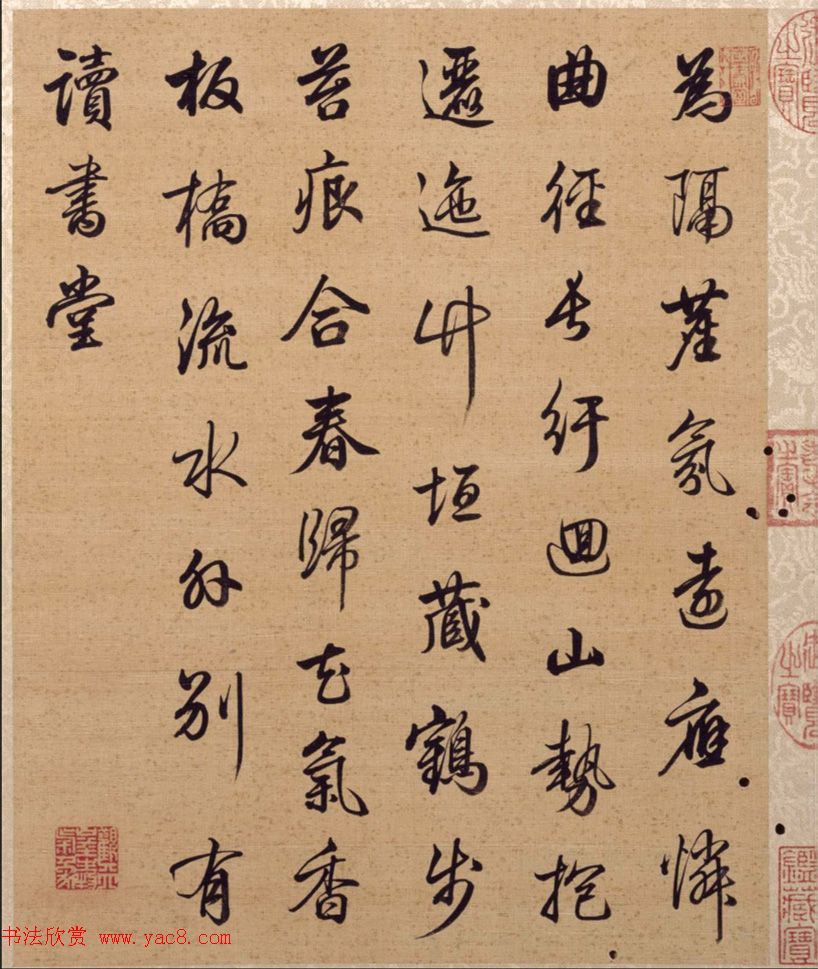 為隔塵氛遠應憐
曲徑長紆迴山勢抱
邐迤竹垣藏鶴步
苔痕合春歸花氣香
板橋流水外別有
讀書堂
鑑藏寶
书法欣赏 www.yac8.com